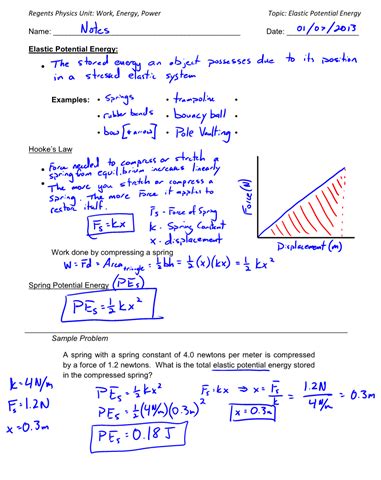 Regents Physics Unit: Work, Energy, Power Topic: Elastic Potential Energy
Name: Notes Date: 01/07/2013
Elastic Potential Energy:
• The stored energy an object possesses due to its position
in a stressed elastic system
Examples: • springs • trampoline •
• rubber bands • bouncy ball •
• bow [& arrow] • Pole Vaulting •
Hooke's Law
• Force needed to compress or stretch a
spring from equilibrium increases linearly
• The more you stretch or compress a
spring. The more force it applies to
restore itself.
Fs = kx
Fs - Force of Spring
k - Spring Constant
x - displacement
Force (N)
Displacement (m)
Work done by compressing a spring
W = Fd = Area triangle = ½bh = ½(x)(kx) = ½kx²
Spring Potential Energy (PEs)
PEs = ½kx²
Sample Problem
A spring with a spring constant of 4.0 newtons per meter is compressed
by a force of 1.2 newtons. What is the total elastic potential energy stored
in the compressed spring?
k = 4N/m
Fs = 1.2N
x = 0.3m
PEs = ½kx²
PEs = ½(4N/m)(0.3m)²
PEs = 0.18 J
Fs = kx ⇒ x = Fs/k = 1.2N/4N/m = 0.3m
x = 0.3m